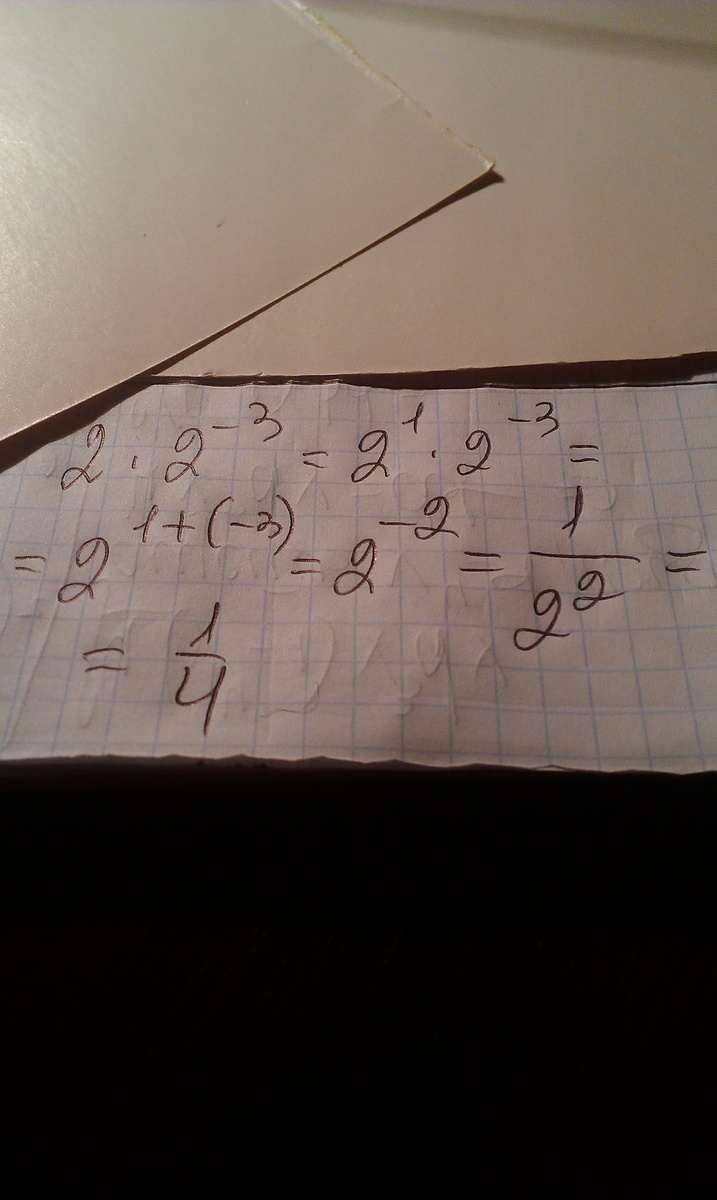 2 · 2⁻³ = 2¹ · 2⁻³ =
= 2¹⁺⁽⁻³⁾ = 2⁻² = 1/2² =
= 1/4